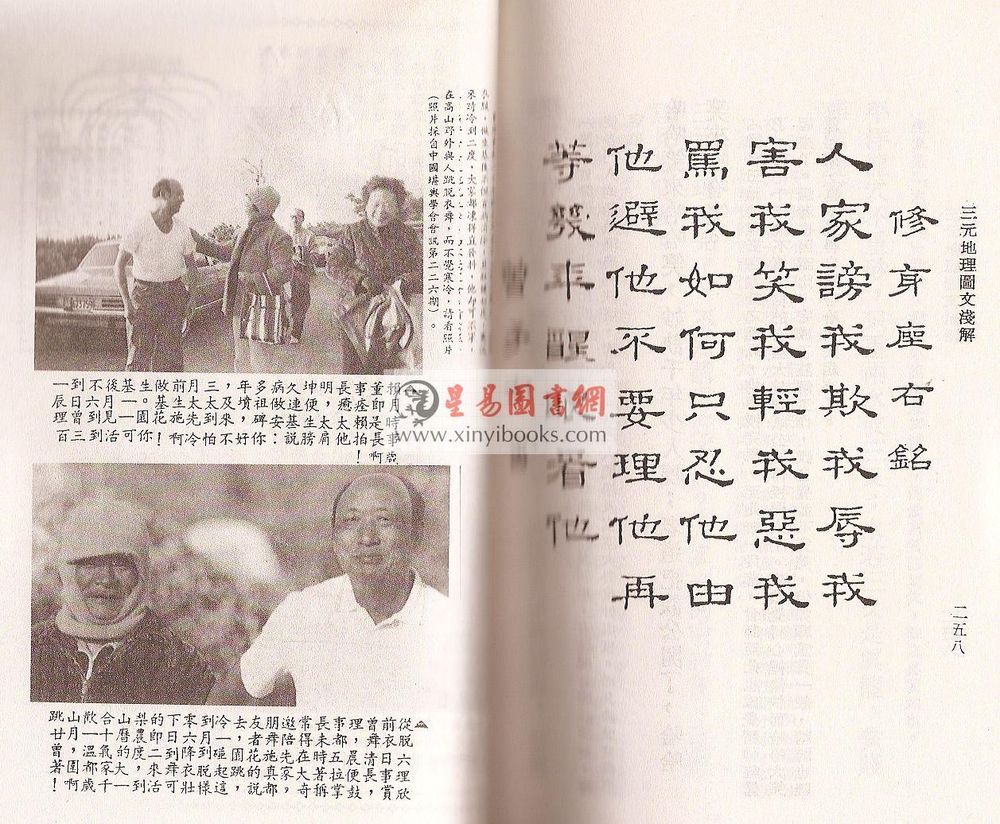 三元地理圖文淺解
修身座右銘
人家謗我欺我辱我
害我笑我輕我惡我
罵我如何只忍他由
他避他不要理他再
等幾年醒着他
二五八
來時冷到二度,大家都凍得直發抖,他卻
在高山野外與人跳脫衣舞,而不覺寒冷,請看照片
(照片採自中國堪輿學會會訊第二二六期)。
賴董事長明坤久病多年,三月前做生基後不到一
月即痊癒,便連做祖墳及太太生基。一月六日辰
時是賴太太生基安碑,來到先施花園一見到曾理
事長拍他肩膀說:你好不怕冷啊!你可活到三百
歲啊!
從前曾理事長常邀朋友去冷到零下的梨山合歡山跳
脫衣舞,都未得陪舞者,一月六日即農曆十一月廿
六日清晨五時在先施花園碰到降到二度的氣溫,曾
理事長便拉著大家真的跳起脫衣舞來,大家都圍著
欣賞鼓掌稱奇,都說這樣壯可活到一千歲啊!
星易圖書網
www.xinyibooks.com